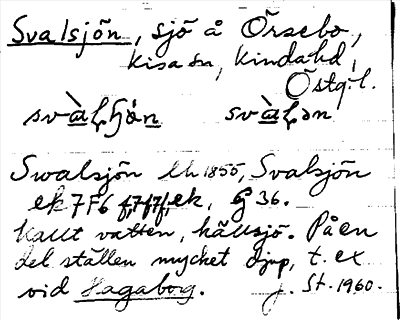 Svalsjön, sjö å Örsebo,
Kisa sn, Kinda hd,
Östg. l.
Svalsjön lh 1855, Svalsjön
ek 7F6 ek, G 36.
Kallt vatten, källsjö. På en
del ställen mycket djup, t. ex
vid Hagaborg. J. St. 1960.